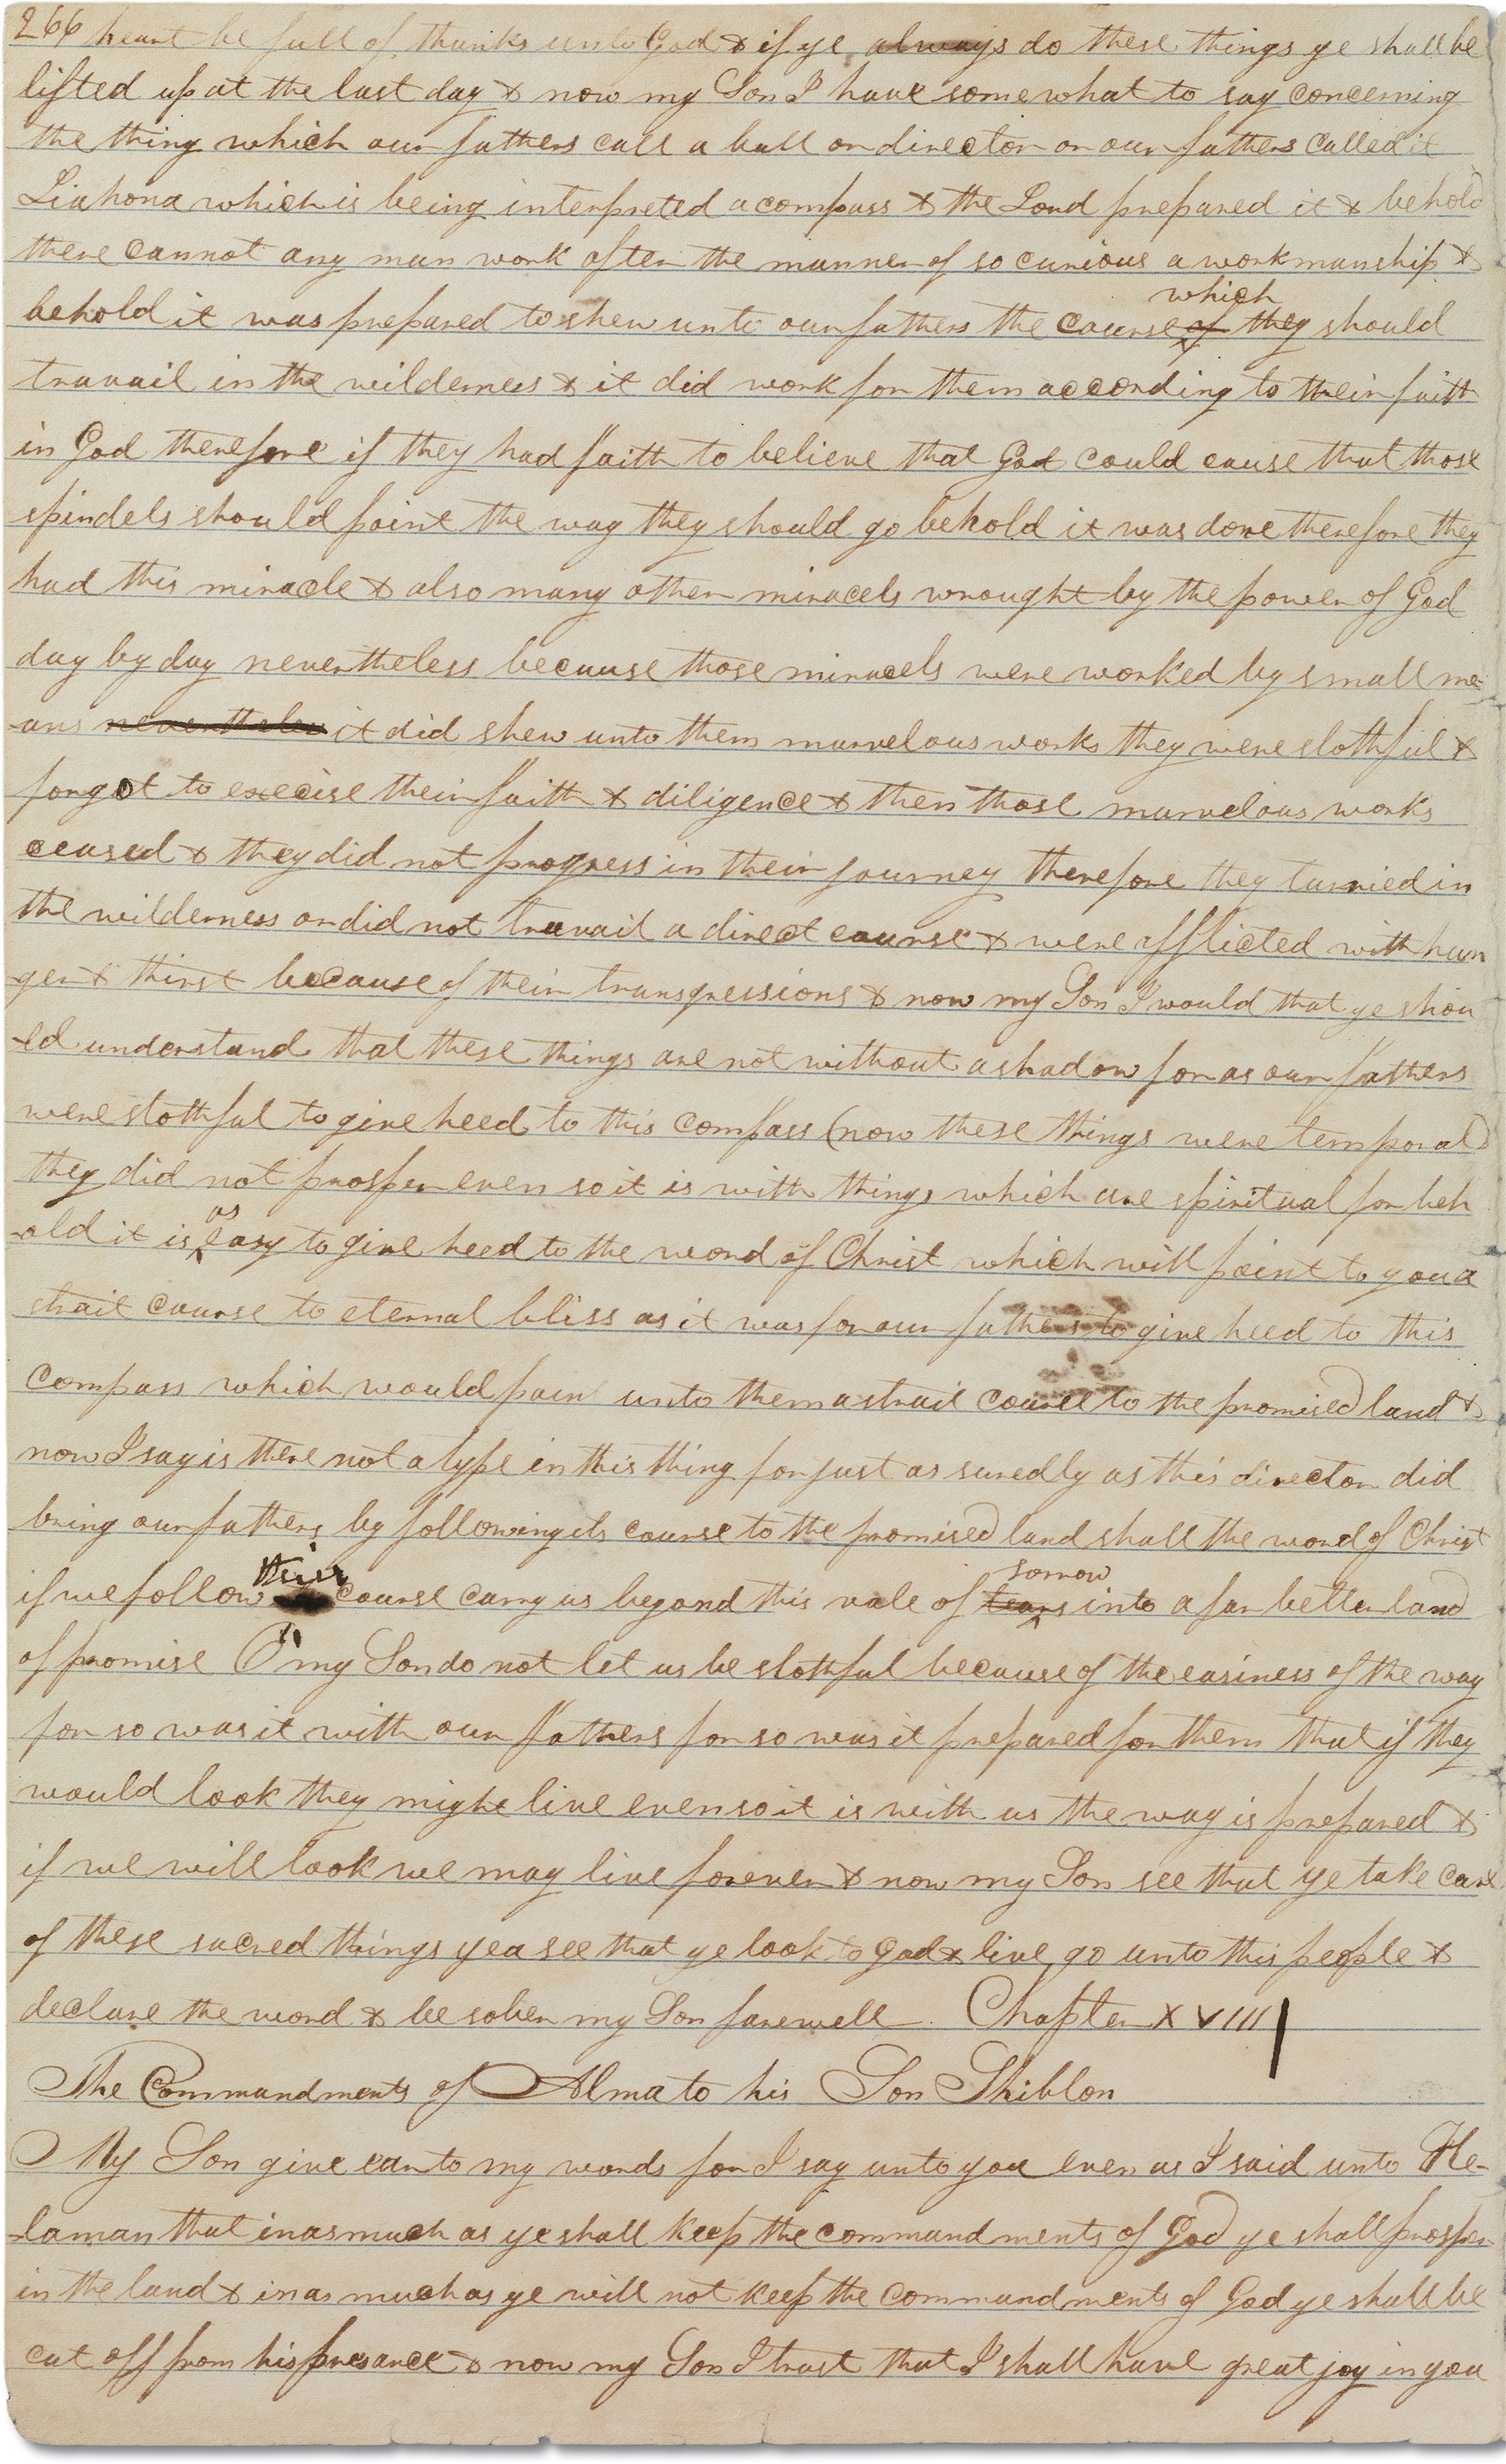 266 heart be full of thanks unto God & if ye always do these things ye shall be
lifted up at the last day & now my Son I have somewhat to say concerning
the thing which our fathers call a ball or director or our fathers called it
Liahona which is being interpreted a compass & the Lord prepared it & behold
there cannot any man work after the manner of so curious a workmanship &
which
behold it was prepared to shew unto our fathers the course of they should
travail in the wilderness & it did work for them according to their faith
in God therefore if they had faith to believe that God could cause that those
spindels should point the way they should go behold it was done therefore they
had this miracle & also many other miracels wrought by the power of God
day by day nevertheless because those miracels were worked by small me-
-ans nevertheless it did shew unto them marvelous works they were slothful &
forgot to execise their faith & diligence & then those marvelous works
ceased & they did not progress in their journey therefore they tarried in
the wilderness or did not travail a direct course & were afflicted with hun
-ger & thirst because of their transgressions & now my Son I would that ye shou
-ld understand that these things are not without a shadow for as our fathers
were slothful to give heed to this compass (now these things were temporal)
they did not prosper even so it is with things which are spiritual for beh
as
-old it is easy to give heed to the word of Christ which will point to you a
strait course to eternal bliss as it was for our fathers to give heed to this
compass which would poin unto them a strait course to the promised land &
now I say is there not a type in this thing for just as suredly as this director did
bring our fathers by following its course to the promised land shall the word of Christ
their sorrow
if we follow course carry us beyond this vale of tears into a far better land
of promise O my Son do not let us be slothful because of the easiness of the way
for so was it with our fathers for so was it prepared for them that if they
would look they might live even so it is with us the way is prepared &
if we will look we may live forever & now my Son see that ye take care
of these sacred things yea see that ye look to God & live go unto this people &
declare the word & be sober my Son farewell. Chapter XVIII
The Commandments of Alma to his Son Shiblon
My Son give ear to my words for I say unto you even as I said unto He-
-laman that inasmuch as ye shall keep the commandments of God ye shall prosper
in the land & inasmuch as ye will not keep the commandments of God ye shall be
cut off from his presance & now my Son I trust that I shall have great joy in you